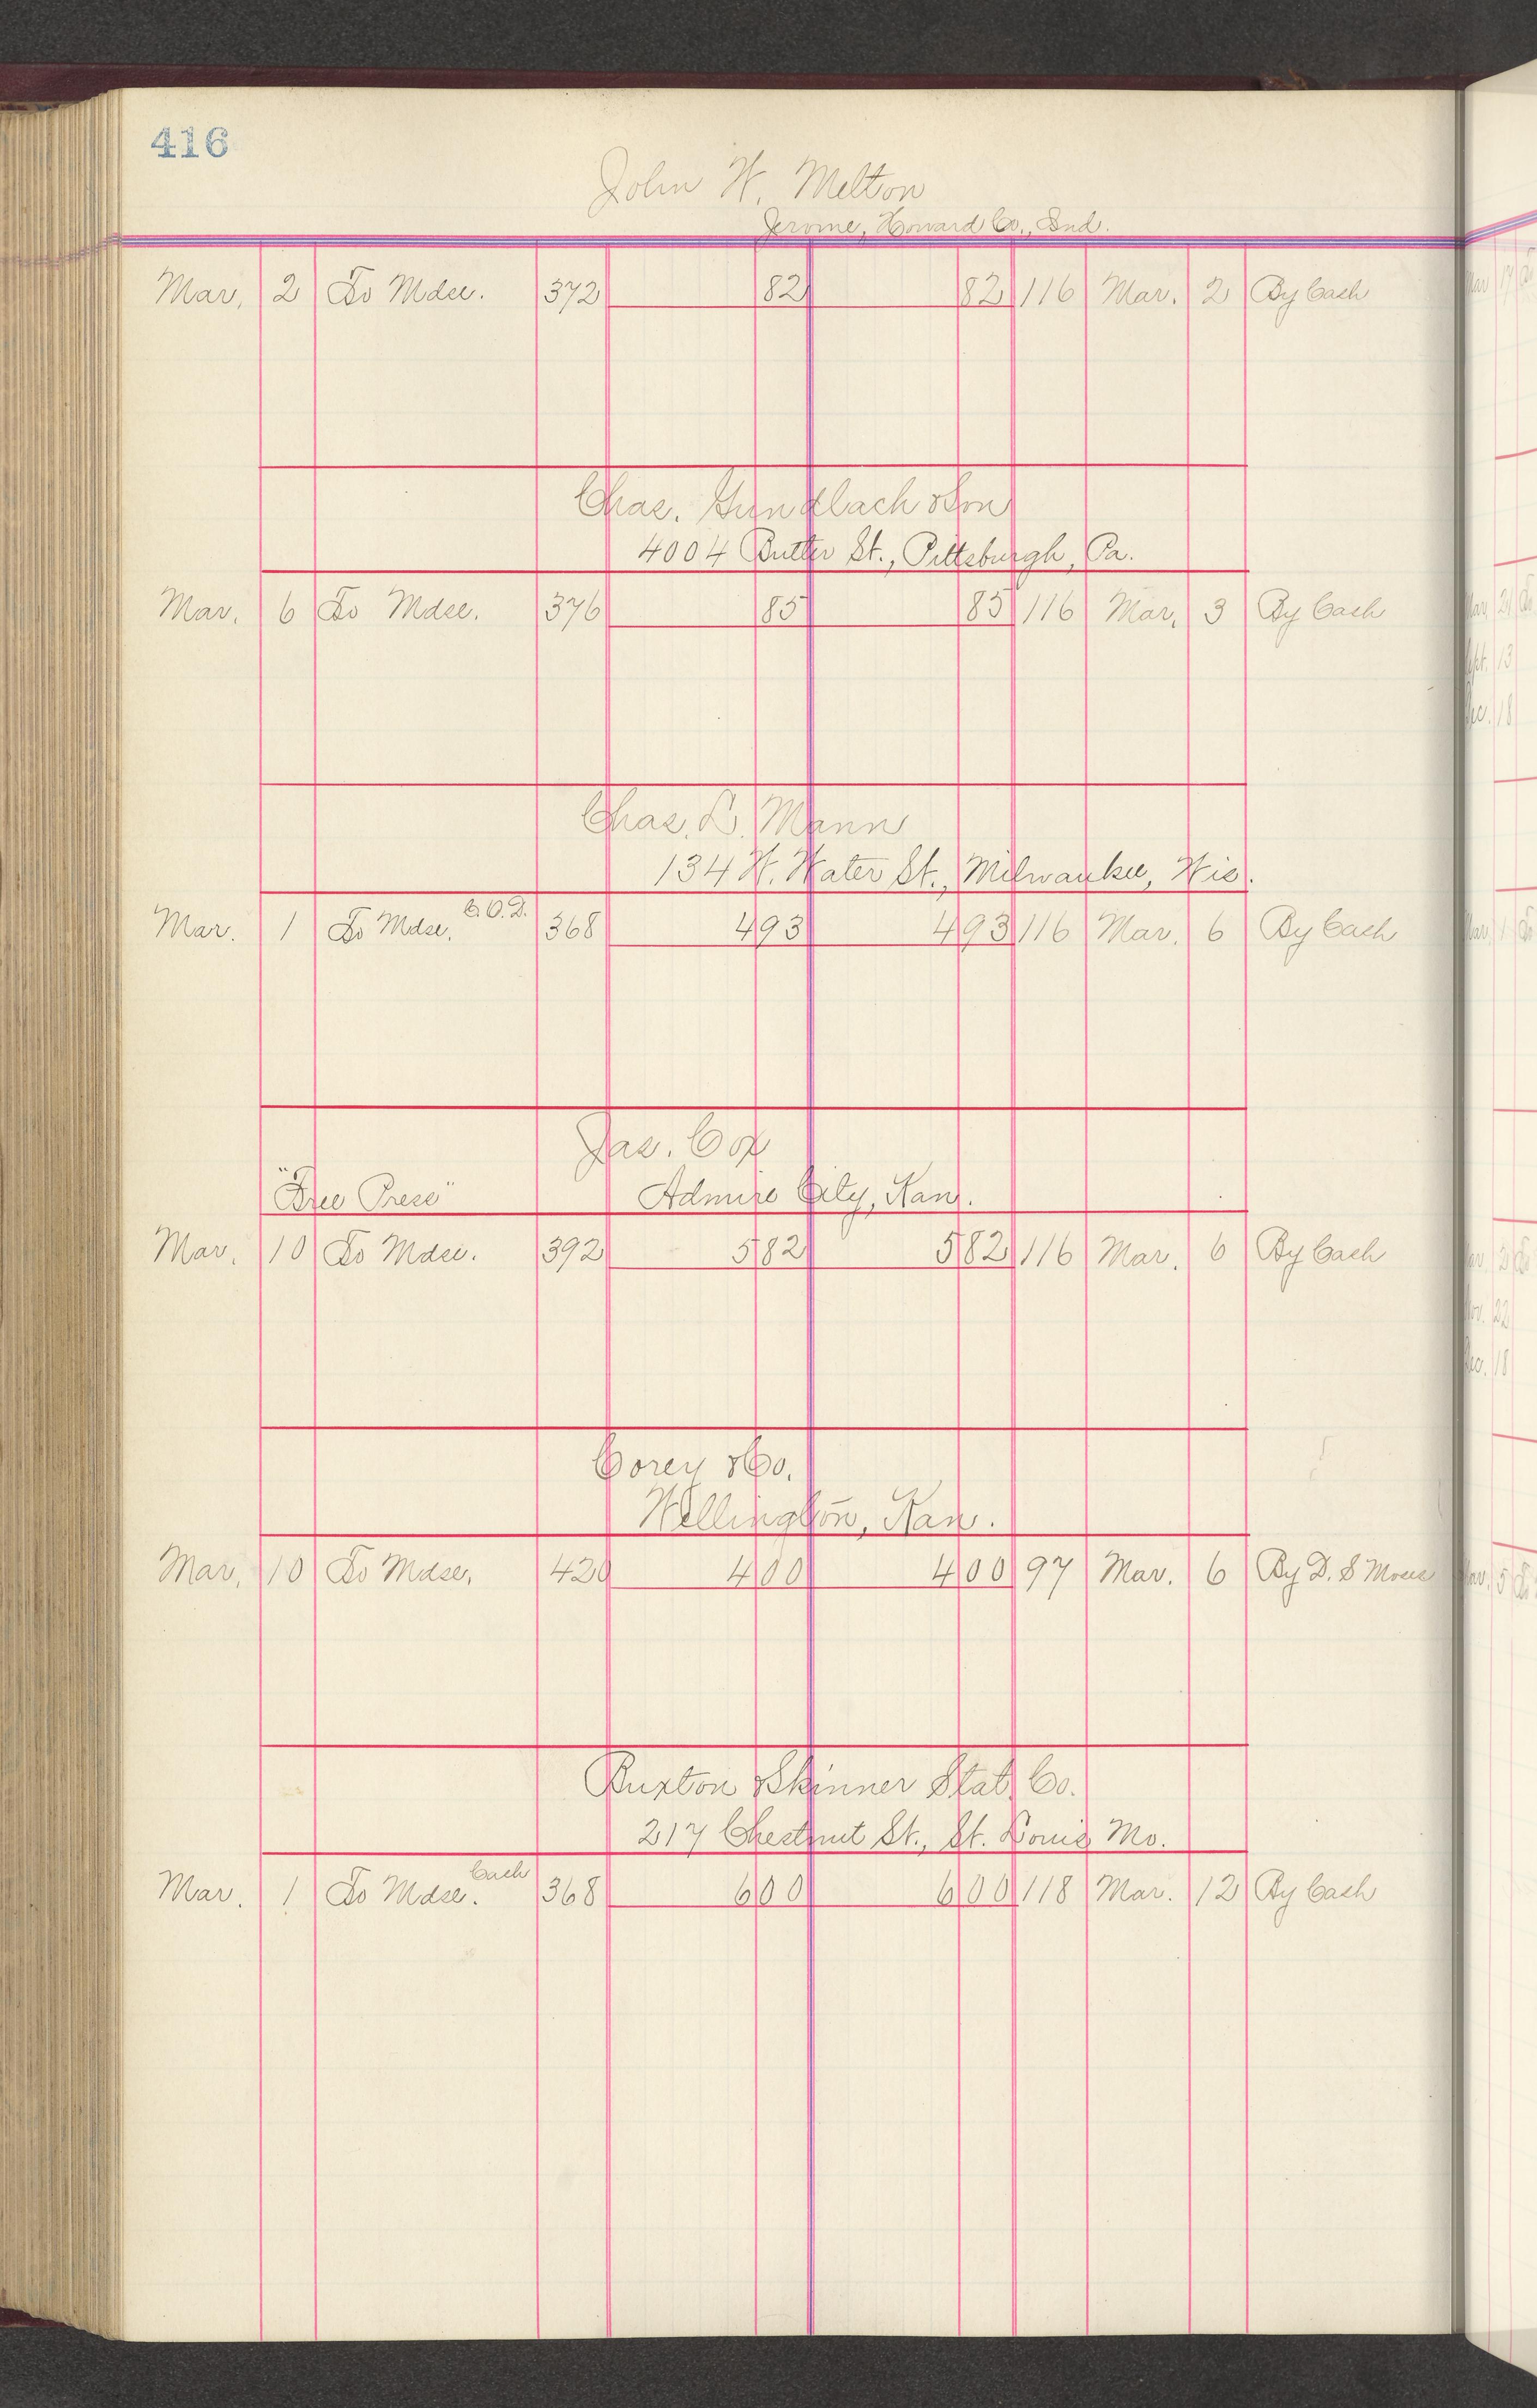 416
John W. Melton
Jerome, Howard Co., Ind.
Mar. 2 To Mdse. 372 82 82 116 Mar. 2 By Cash
Chas. Gundlach & Son
4004 Butler St., Pittsburgh, Pa.
Mar. 6 To Mdse. 376 85 85 116 Mar. 3 By Cash
Chas. L. Mann
134 W. Water St., Milwaukee, Wis.
Mar. 1 To Mdse. C.O.D. 368 4 93 4 93 116 Mar. 6 By Cash
Jas. Cox
"Free Press" Admire City, Kan.
Mar. 10 To Mdse. 392 5 82 5 82 116 Mar. 6 By Cash
Corey & Co.
Wellington, Kan.
Mar. 10 To Mdse. 420 4 00 4 00 97 Mar. 6 By D. S Moses
Buxton & Skinner Stat. Co.
217 Chestnut St., St. Louis Mo.
Mar. 1 To Mdse. Cash 368 6 00 6 00 118 Mar. 12 By Cash